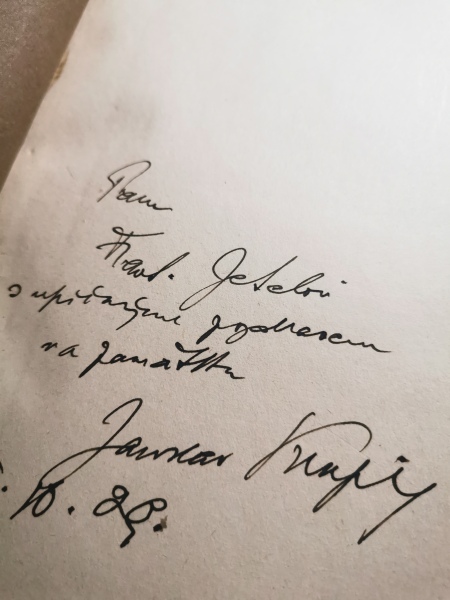 Panu
Frant. Jetelovi
s upřímným pozdravem
na památku
Jaroslav Kvapil
10. 29.